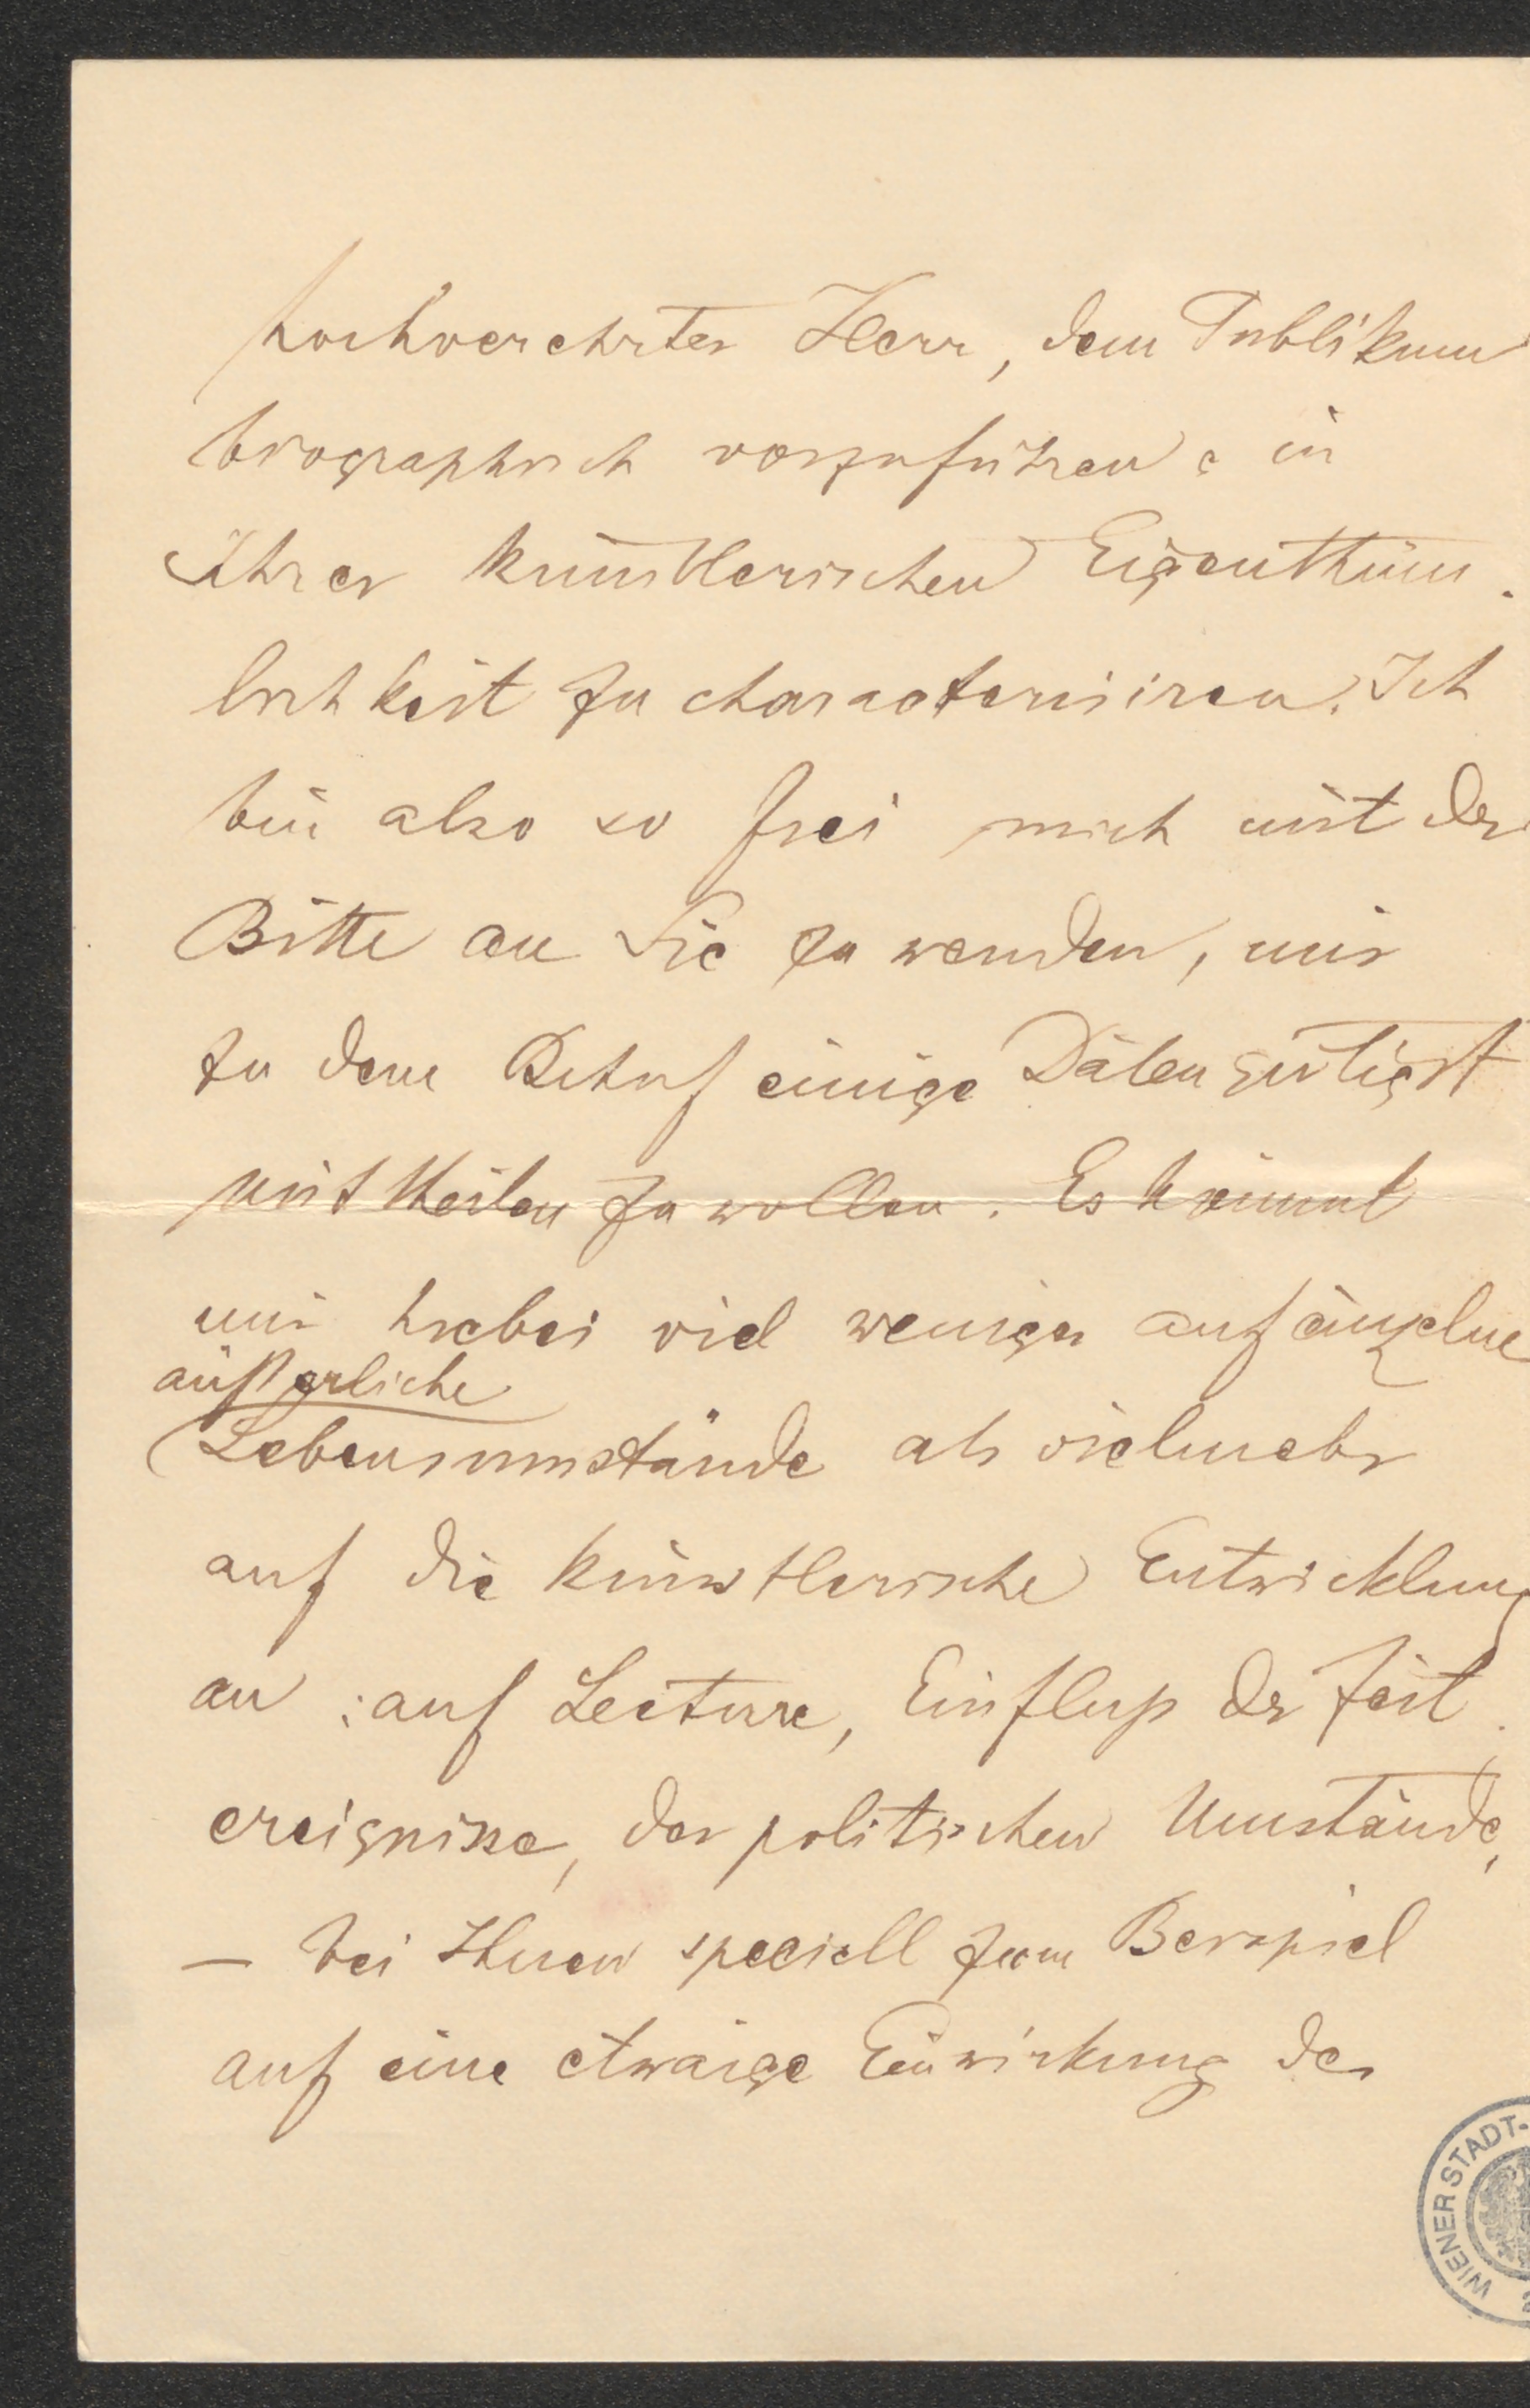 hochverehrter Herr, dem Publikum
biographisch vorzuführen & in
Ihrer künstlerischen Eigenthüm-
lichkeit zu characterisiren. Ich
bin also so frei mich mit der
Bitte an Sie zu wenden, mir
zu dem Behuf einige Daten gütigst
mittheilen zu wollen. Es kömmt
mir hiebei viel weniger auf einzelne
äußerliche
Lebensumstände als vielmehr
auf die künstlerische Entwicklung
an : auf Lecture, Einfluß der Zeit-
ereignisse, der politischen Umstände,
— bei Ihnen speciell zum Beispiel
auf eine etwaige Einwirkung der
WIENER STADT-